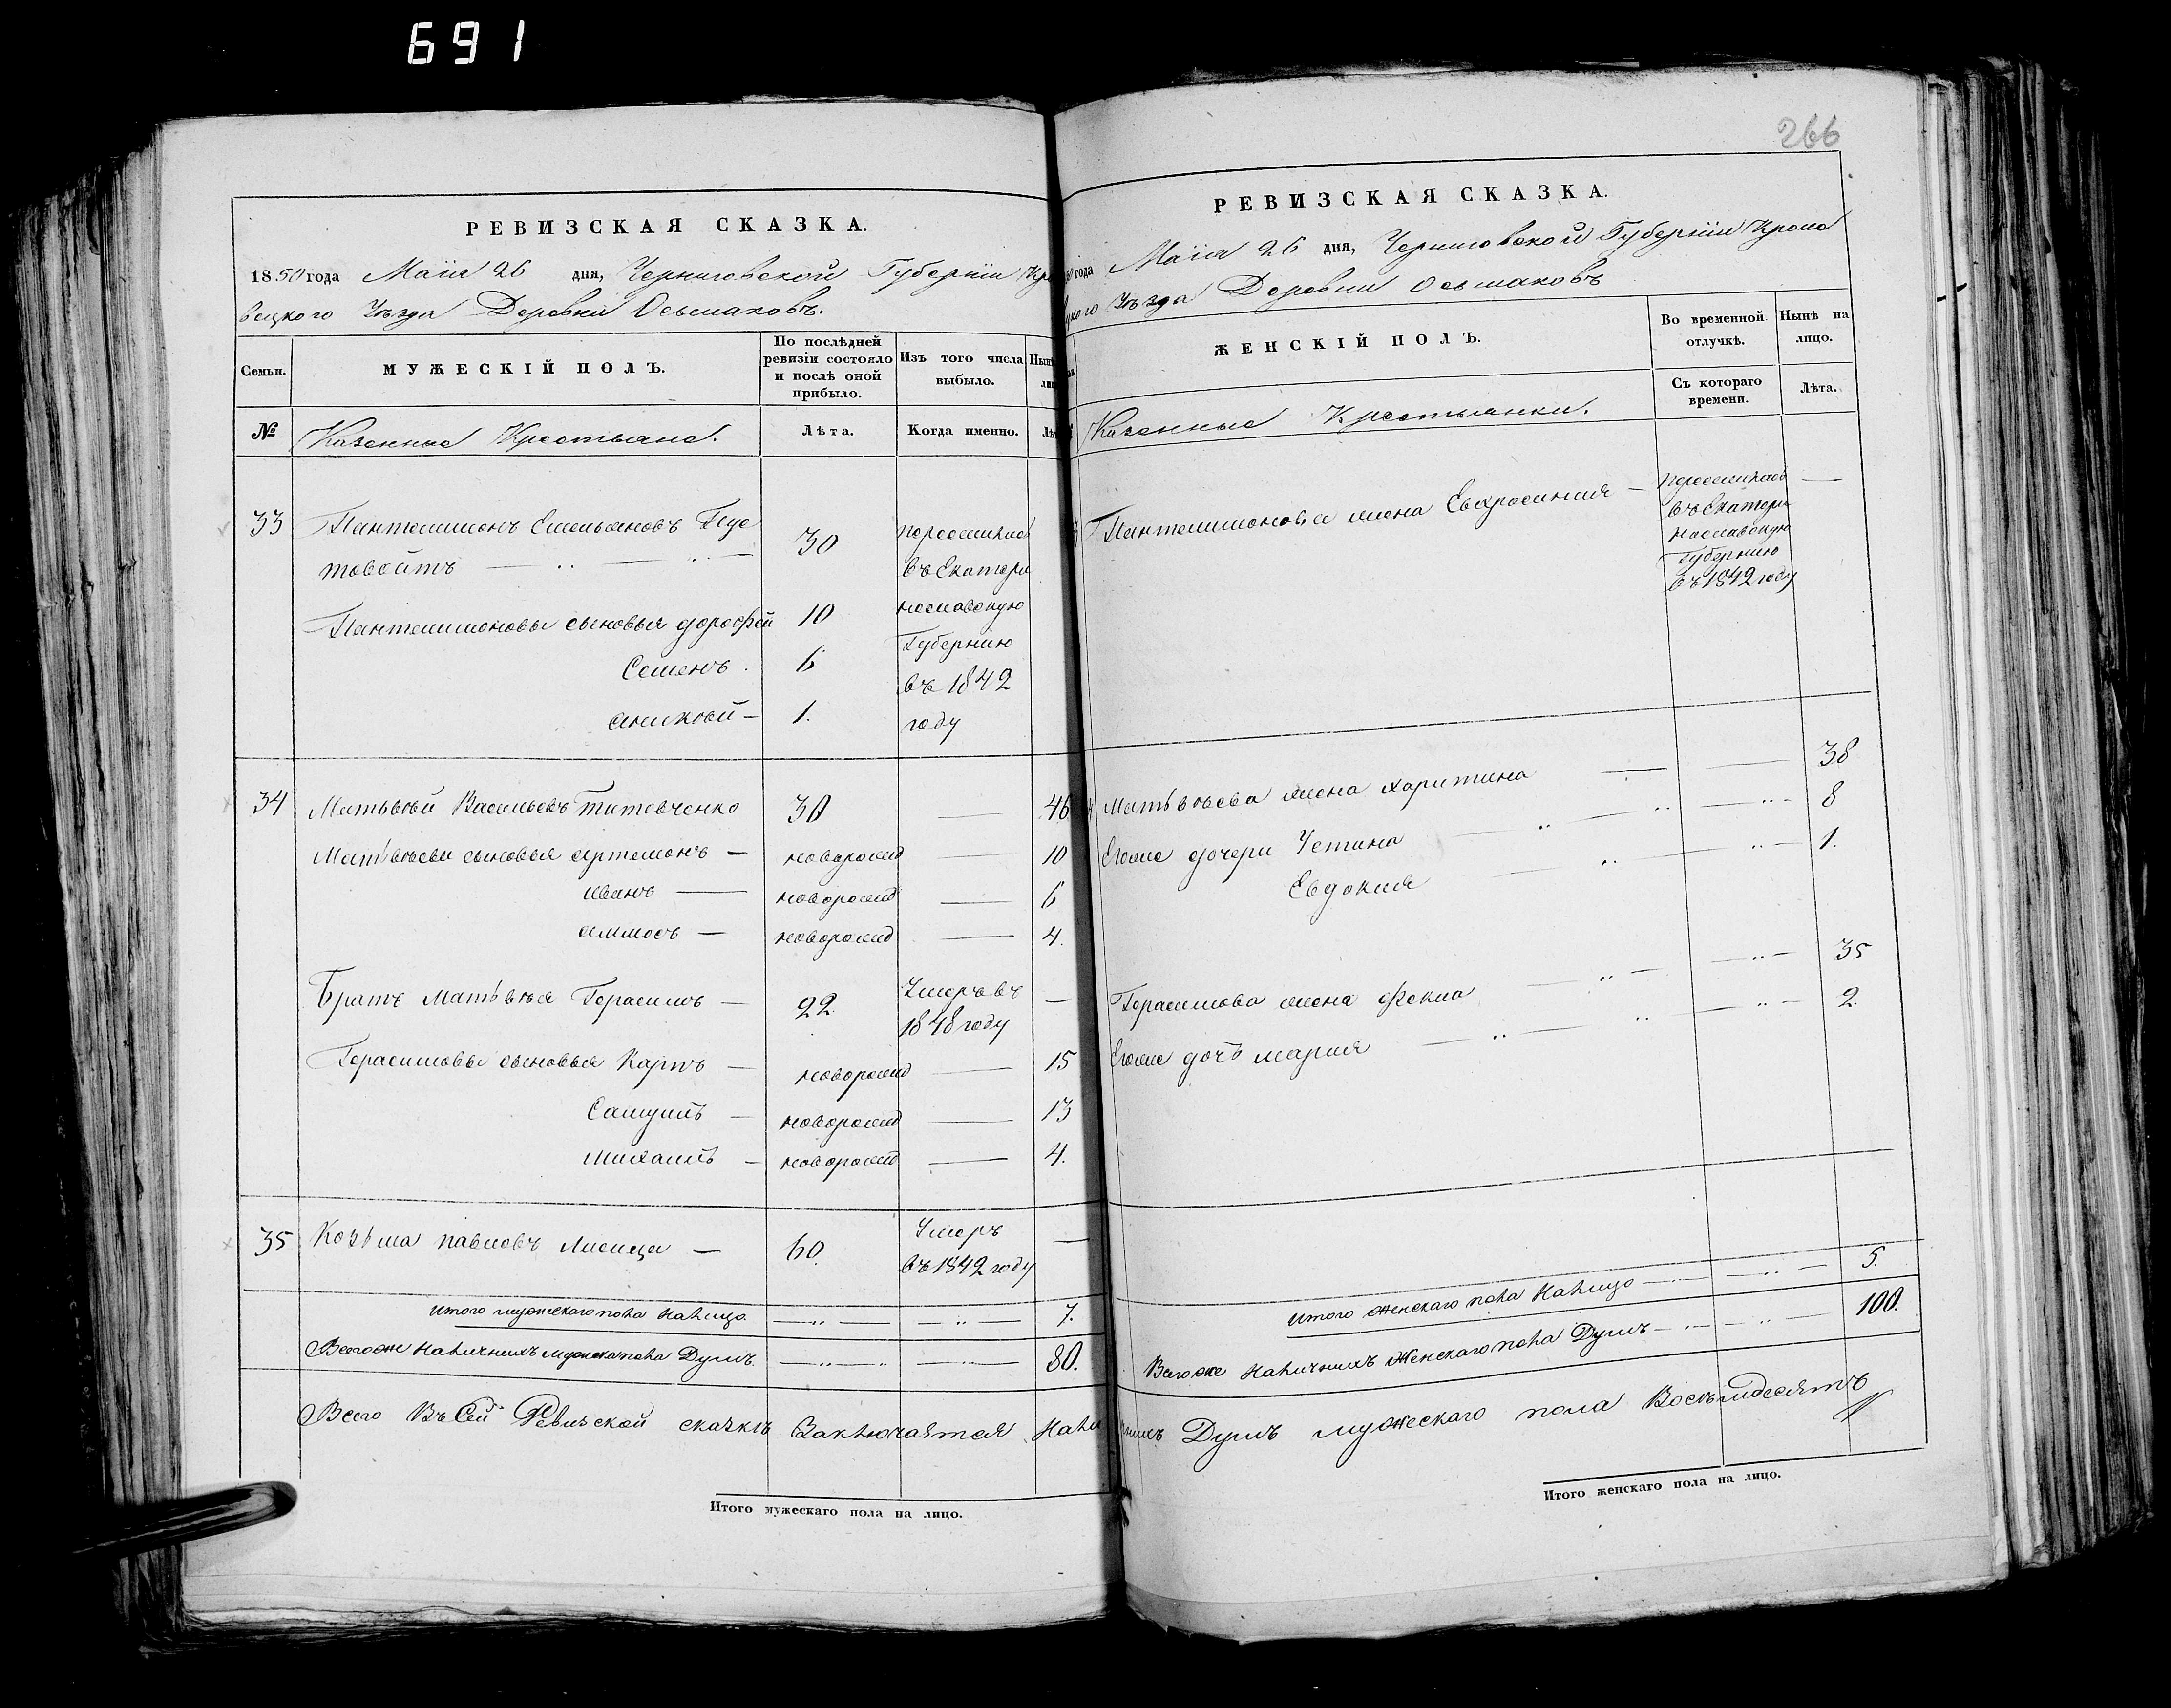 691
266
РЕВИЗСКАЯ СКАЗКА.
1850 года Маiя 26 дня, Черниговской Губернiи Кро
вецкого Уѣзда Деревни Осьмаковъ.
Семьи.
МУЖЕСКІЙ ПОЛЪ.
По послѣдней ревизіи состояло и послѣ оной прибыло.
Изъ того числа выбыло.
№
Казенные Крестьяне.
Лѣта.
Когда именно.
33 Пантелимонъ Емельяновъ Пус
товойтъ 30 переселился
въ Екатери
Пантелимоновы сыновья дорофей 10 нославскую
Губернiю
Семенъ. 6 въ 1842
аликсѣй 1. году
34 Матьвѣй Васильевъ Титовченко 30 46
Матвѣевы сыновья артемонъ новорожд 10
иванъ новорожд 6
аммосъ новорожд 4.
Братъ Матвѣя Герасимъ 22. Умеръ въ
1848 году
Герасимовы сыновья Карпъ новорожд 15
Самуилъ новорожд 13
михаилъ новорожд 4.
35 Козьма павловъ Лисица 60. Умеръ
въ 1842 году
итого мужескаго пола Налицо. 7.
Всегоже Наличныхъ мужска пола Душъ. 80.
Всего Въ Сей Ревизской сказкѣ Заключается Нали
Итого мужескаго пола на лицо.
РЕВИЗСКАЯ СКАЗКА.
года Маiя 26 дня, Черниговской Губернiи Кроле
цкого Уѣзда Деревни Осьмаковъ
ЖЕНСКІЙ ПОЛЪ.
Во временной отлучкѣ.
Нынѣ на лицо.
Съ котораго времени.
Лѣта.
Казенные Крестьянки.
Пантелимонова жена Евфросиния переселилась
въ Екатери
нославскую
Губернию
въ 1842 году
Матвѣева жена харитина 38
Егоже дочери Устина 8
Евдокия 1.
Герасимова жена фекла 35
Егоже дочь мария 2.
итого женскаго пола Налицо 5.
Всегоже Наличныхъ Женскаго пола Душъ 100.
чныхъ Душъ мужескаго пола Восьмдесятъ
Итого женскаго пола на лицо.